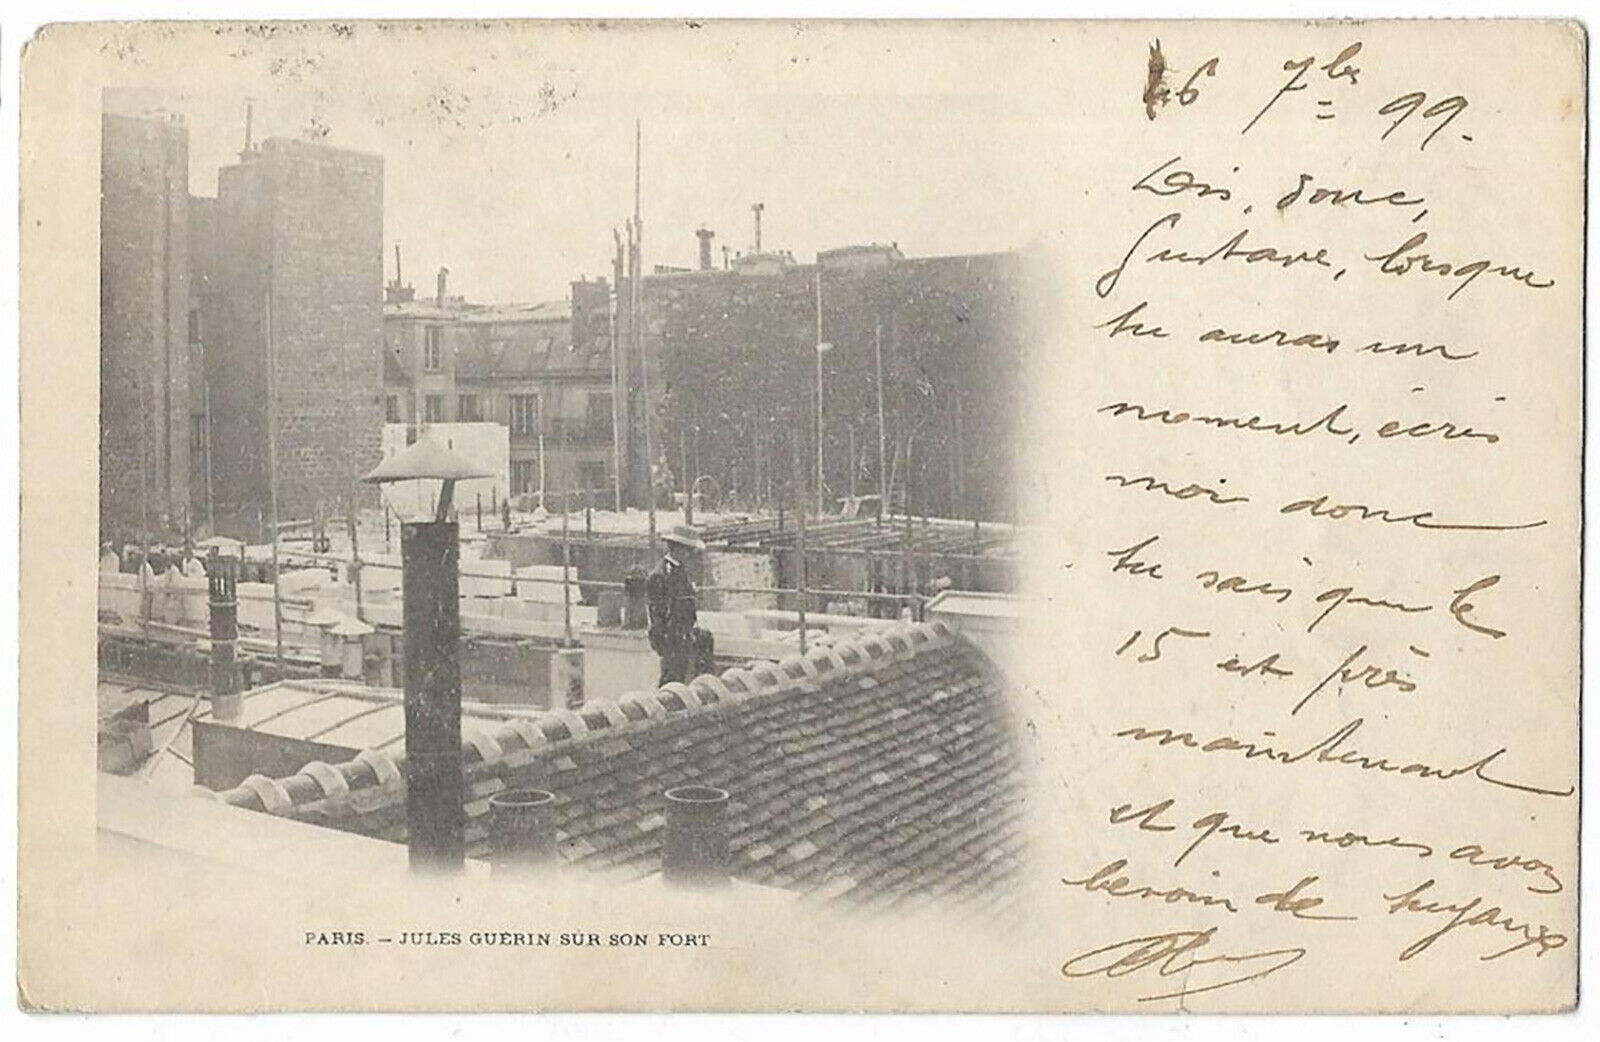 6 7bre 99.
Dis, donc,
Gustave, lorsque
tu auras un
moment, écris
moi donc
tu sais que le
15 est près
maintenant
et que nous avons
besoin de tuyaux
PARIS. — JULES GUÉRIN SUR SON FORT